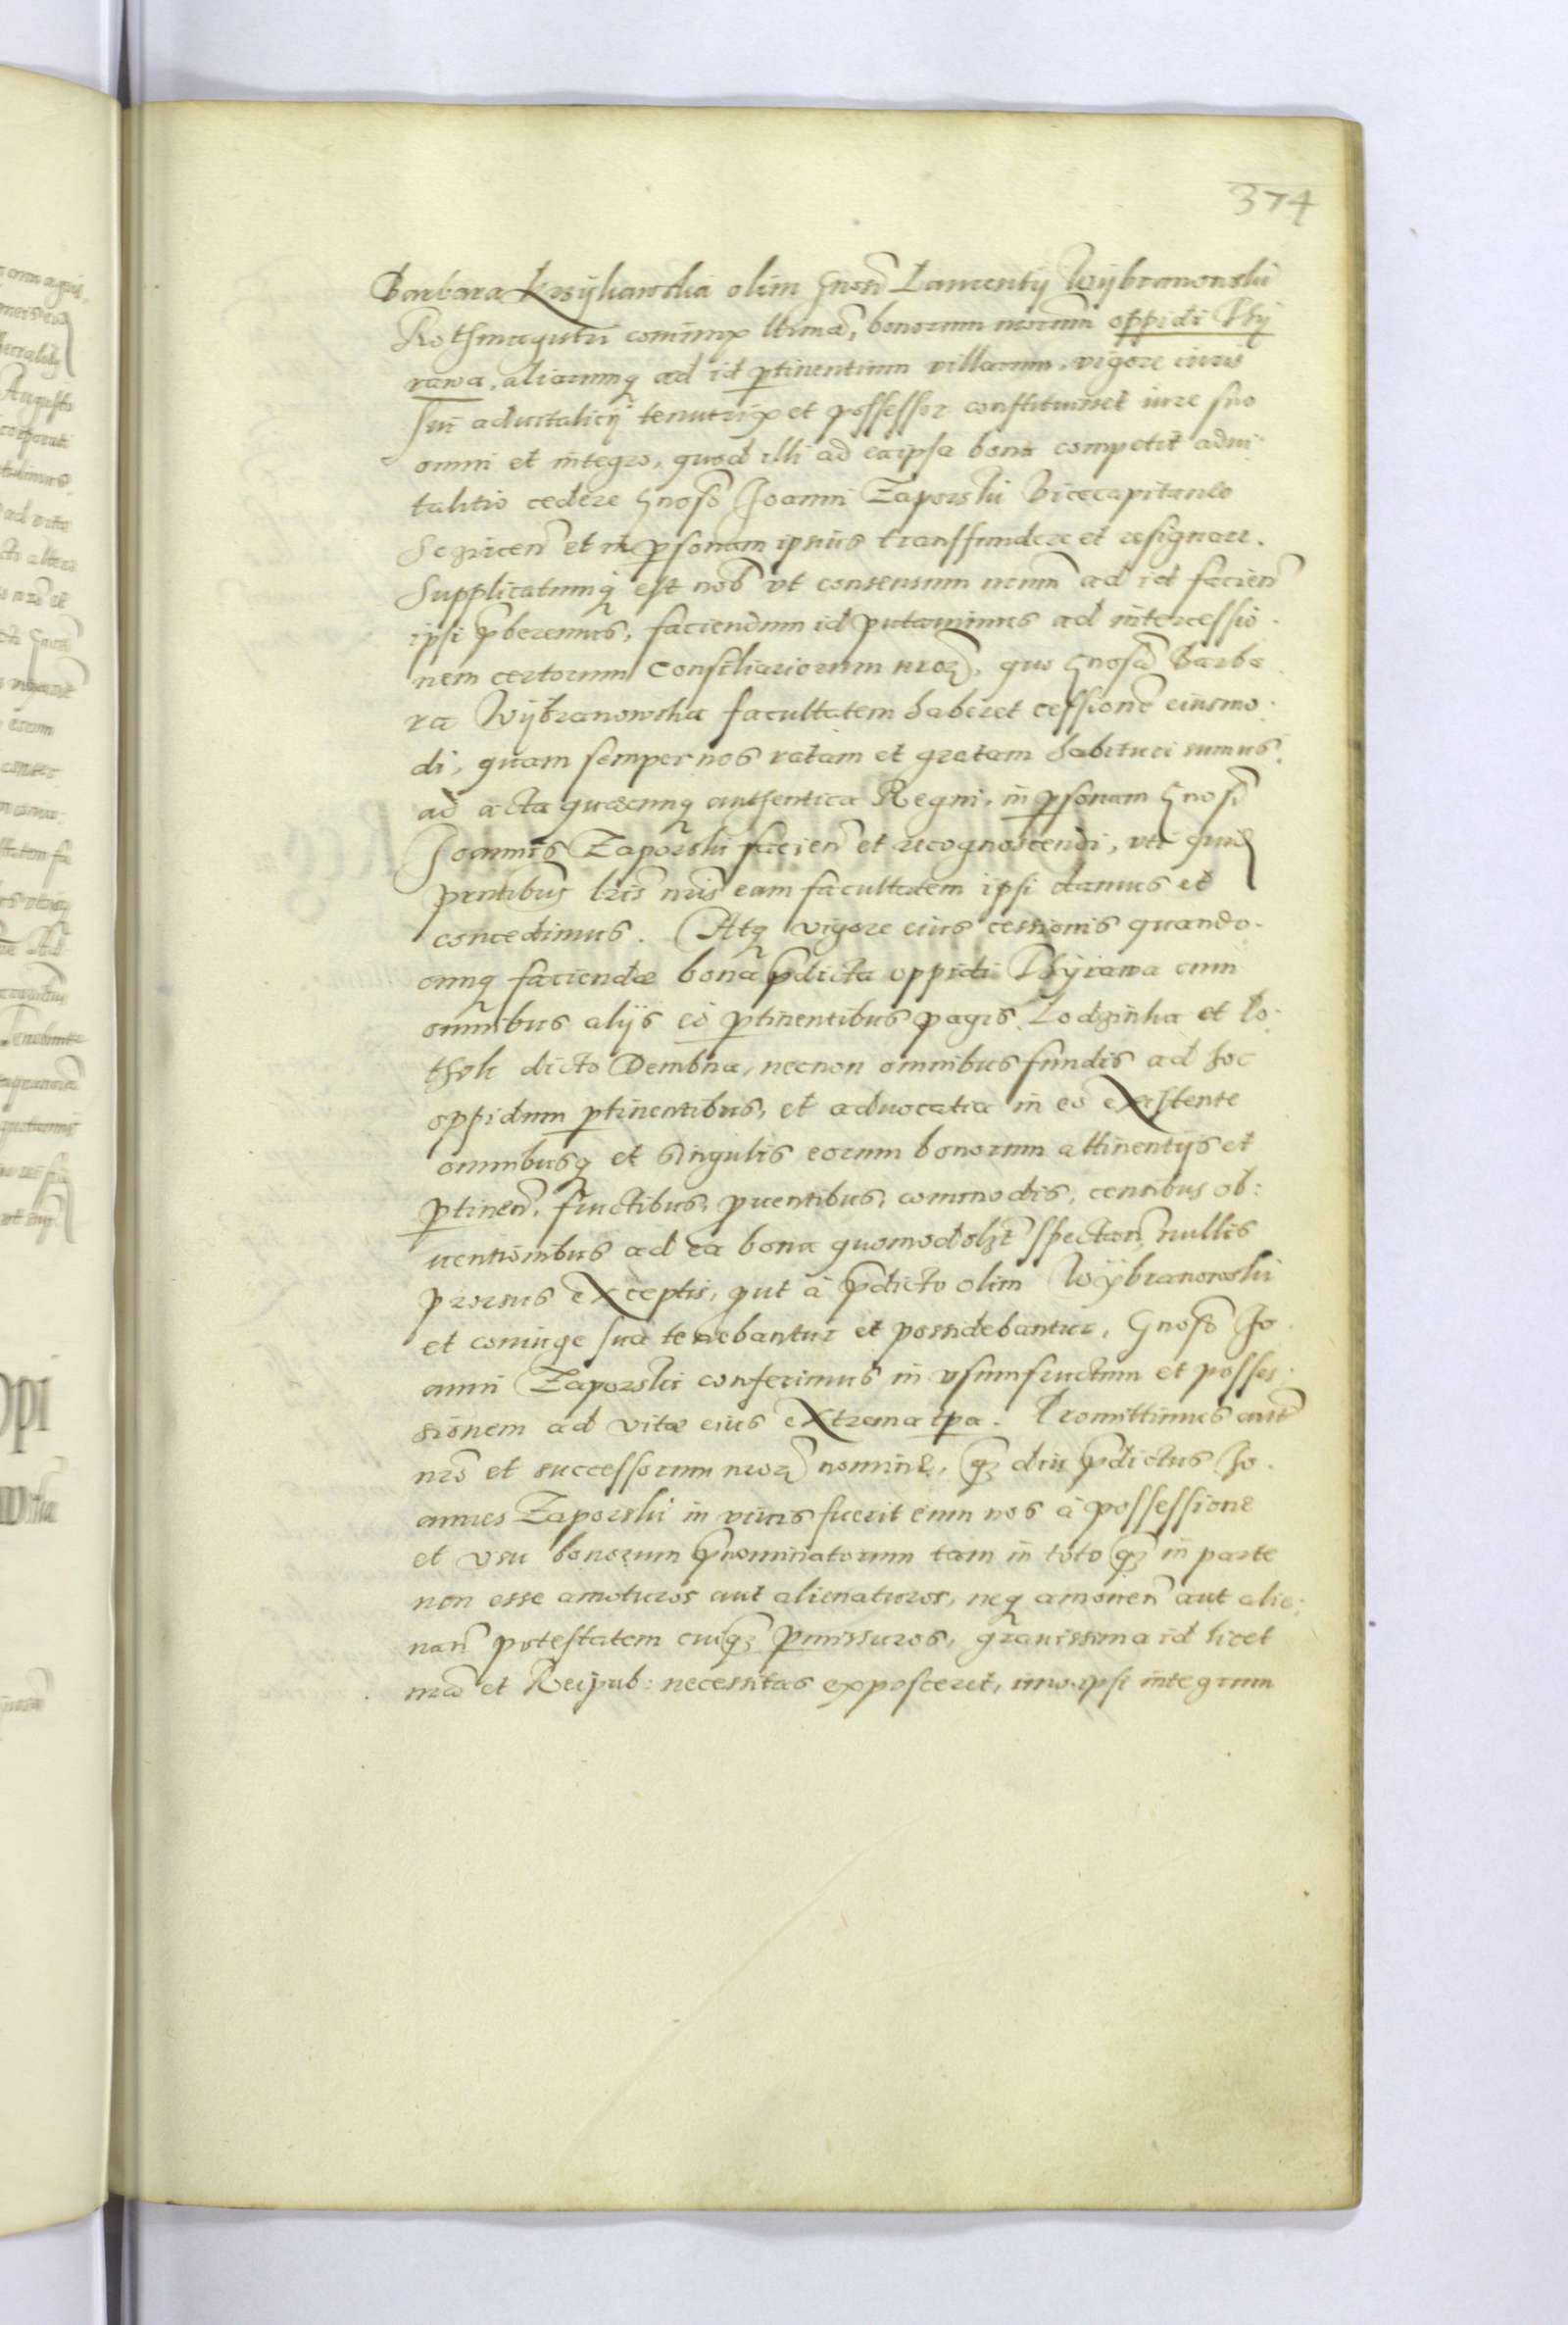 374
Barbara olim Gnosi Laurentij Wÿbranowski
Rothmagistri coniunx ltima, bonorum nrorum oppidi Thÿ
rawa, aliarumq ad id ptinentium villarum, vigore iuris
sui aduitalicij tenutrix et possessor constituisset iure suo
omni et integro, quod illi ad eaipsa bona competit adui
talitio cedere Gnoso Joanni Zaporski Vicecapitaneo
et in psonam ipsius transfundere et resignare.
Supplicatumq est nob vt consensum nrum ad id facien
ipsi pberemus, faciendum id putauimus ad intercessio
nem certorum Consiliariorum nror, quo Gnosa Barba
ra Wÿbranowska facultatem haberet cessione eiusmo
di, quam semper nos ratam et gratam habituri sumus,
ad acta quæcunq authentica Regni, in psonam Gnosi
Joannis Zaporski facien et recognoscendi, uti quid
pntibus lris nris eam facultatem ipsi damus et
concedimus. Atq vigore eius cessionis quando
cunq faciendæ bona pdicta oppidi Thÿrawa cum
omnibus alijs eo ptinentibus pagis Lodzinka et Po
thok dicto Dembna, necnon omnibus fundis ad hoc
oppidum ptinentibus, et aduocatia in eo existente
omnibusq et singulis eorum bonorum attinentijs et
ptinen, fructibus, puentibus, commodis, censibus ob:
uentionibus ad ea bona quomodolzt spectan, nullis
prorsus exceptis, put à pdicto olim Wÿbranowski
et coniuge sua tenebantur et possidebantur, Gnoso Jo
anni Zaporski conferimus in vsumfructum et posses
sionem ad vitæ eius extrema tpa. Promittimus aut
nro et successorum nror nomine, qz diu pdictus Jo
annes Zaporski in viuis fuerit eum nos à possessione
et vsu bonorum pnominatorum tam in toto qz in parte
non esse amoturos aut alienaturos, neq amouen aut alie
nan potestatem cuiqz pmissuros, grauissima id licet
nra et Reipub: necessitas exposceret, imo ipsi integrum